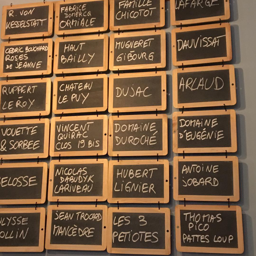 R. VON
KESSELSTATT
FABRICE
DOMERCQ
ORMIALE
FAMILLE
CHICOTOT
LAFARGE
CEDRIC BOUCHARD
ROSES
DE JEANNE
HAUT
BAILLY
MUGNERET
GIBOURG
DAUVISSAT
RUPPERT
LEROY
CHATEAU
LE PUY
DUJAC
ARLAUD
VOUETTE
& SORBEE
VINCENT
QUIRAC
CLOS 19 BIS
DOMAINE
DUROCHÉ
DOMAINE
D'EUGÉNIE
SELOSSE
NICOLAS
DABUDYK
LARIVEAU
HUBERT
LIGNIER
ANTOINE
JOBARD
ULYSSE
COLLIN
JEAN TROCARD
MANCÈDRE
LES 3
PETIOTES
THOMAS
PICO
PATTES LOUP